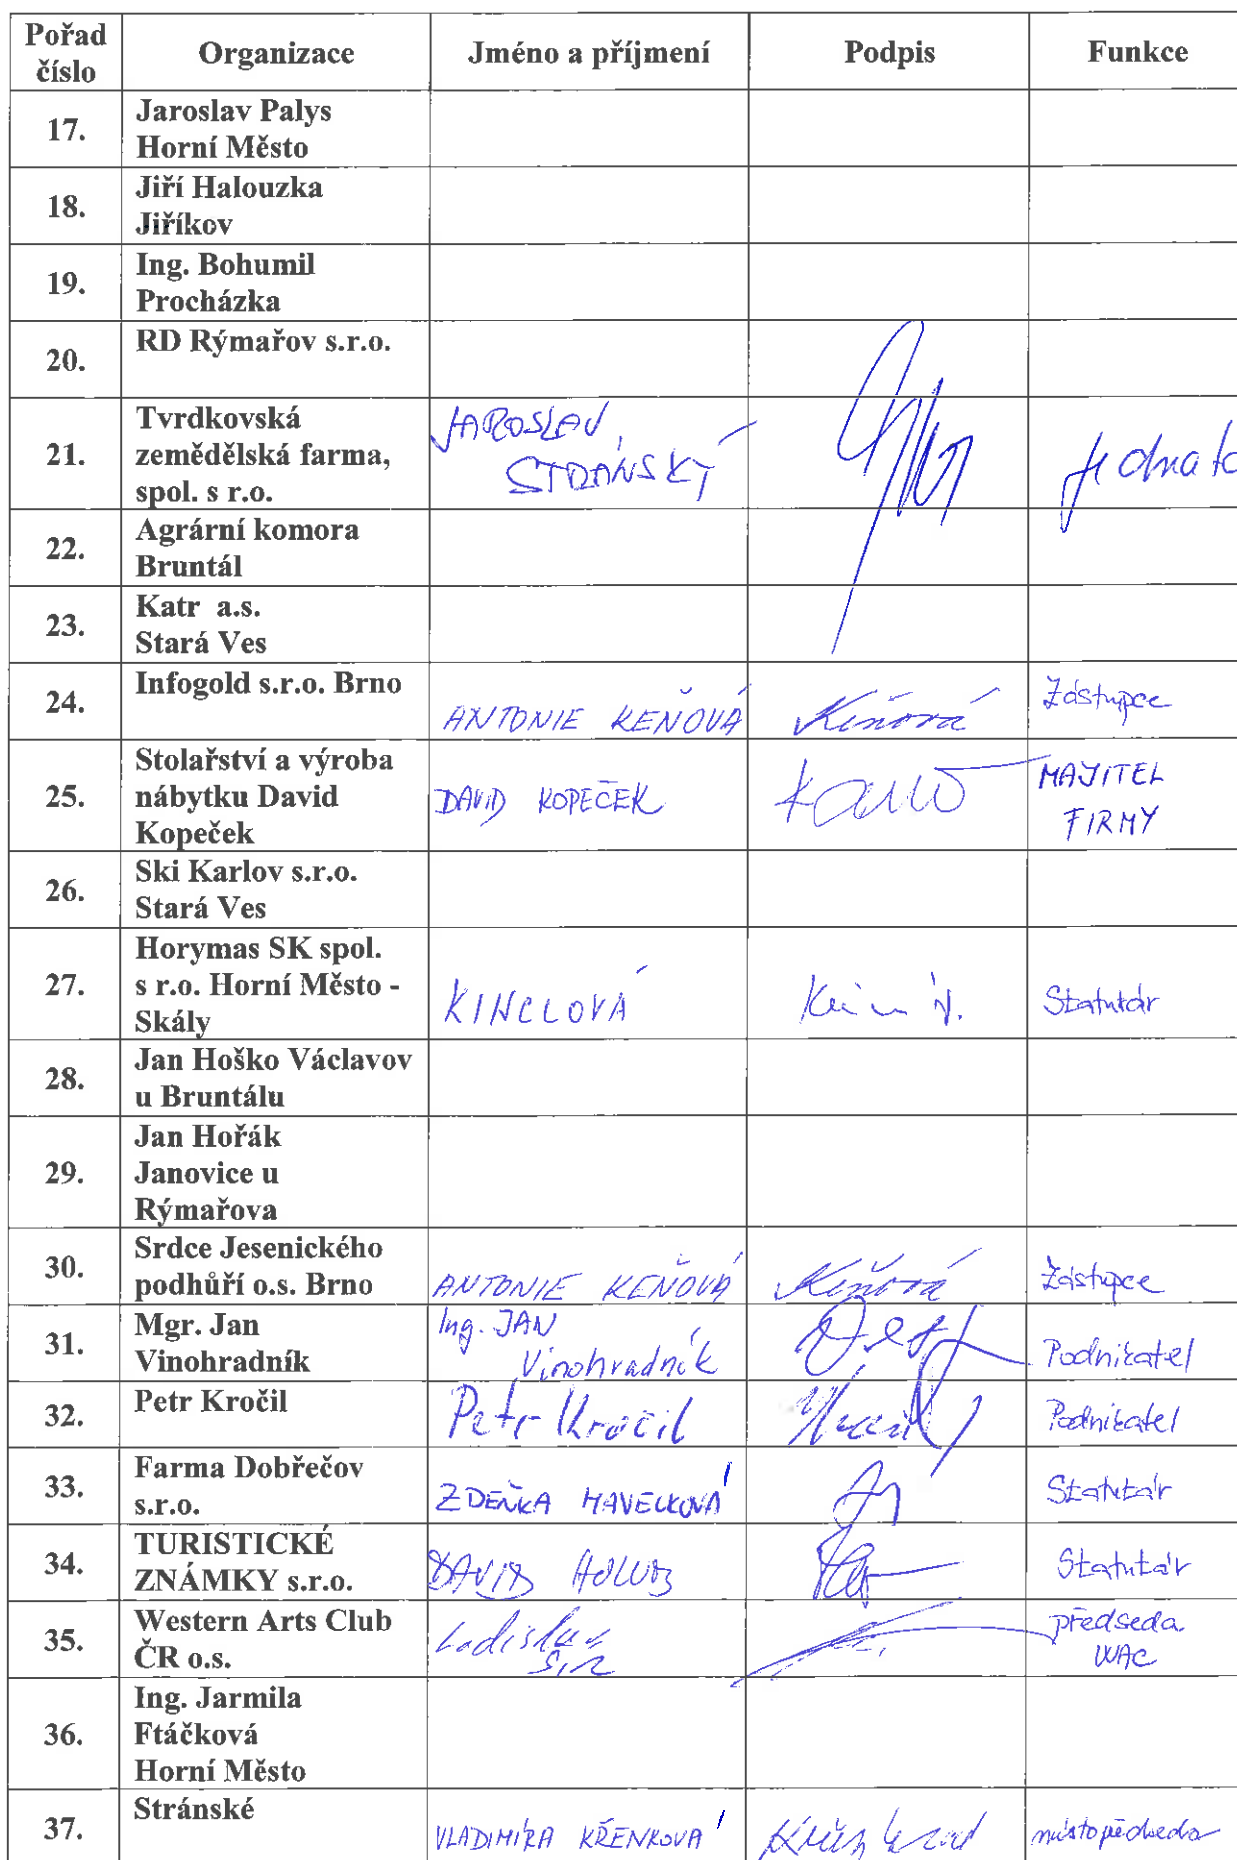 Pořad číslo Organizace Jméno a příjmení Podpis Funkce
17. Jaroslav Palys
Horní Město
18. Jiří Halouzka
Jiříkov
19. Ing. Bohumil
Procházka
20. RD Rýmařov s.r.o.
21. Tvrdkovská
zemědělská farma,
spol. s r.o.
JAROSLAV
STRÁNSKÝ
jednate
22. Agrární komora
Bruntál
23. Katr a.s.
Stará Ves
24. Infogold s.r.o. Brno
ANTONIE KEŇOVÁ Keňová Zástupce
25. Stolařství a výroba
nábytku David
Kopeček
DAVID KOPEČEK
MAJITEL
FIRMY
26. Ski Karlov s.r.o.
Stará Ves
27. Horymas SK spol.
s r.o. Horní Město -
Skály
KINCLOVÁ Statutár
28. Jan Hoško Václavov
u Bruntálu
29. Jan Hořák
Janovice u
Rýmařova
30. Srdce Jesenického
podhůří o.s. Brno
ANTONIE KEŇOVÁ Keňová Zástupce
31. Mgr. Jan
Vinohradník
Ing. JAN
Vinohradník
Podnikatel
32. Petr Kročil
Petr Kročil Podnikatel
33. Farma Dobřečov
s.r.o.
ZDEŇKA HAVELKOVÁ Statutár
34. TURISTICKÉ
ZNÁMKY s.r.o.
DAVID HOLUB Statutár
35. Western Arts Club
ČR o.s.
Ladislav
předseda
WAC
36. Ing. Jarmila
Ftáčková
Horní Město
37. Stránské
VLADIMÍRA KŘENKOVÁ místopředseda